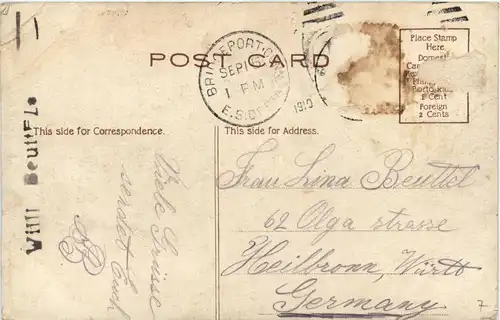 POST CARD
BRIDGEPORT, CONN.
SEP
1 PM
1910
Place Stamp
Here
Domestic
1 Cent
Foreign
2 Cents
This side for Correspondence.
This side for Address.
Willi Beuttel
Viele Grüsse
sendet Euch
Frau Lina Beuttel
62 Olga strasse
Heilbronn, Württ
Germany
7